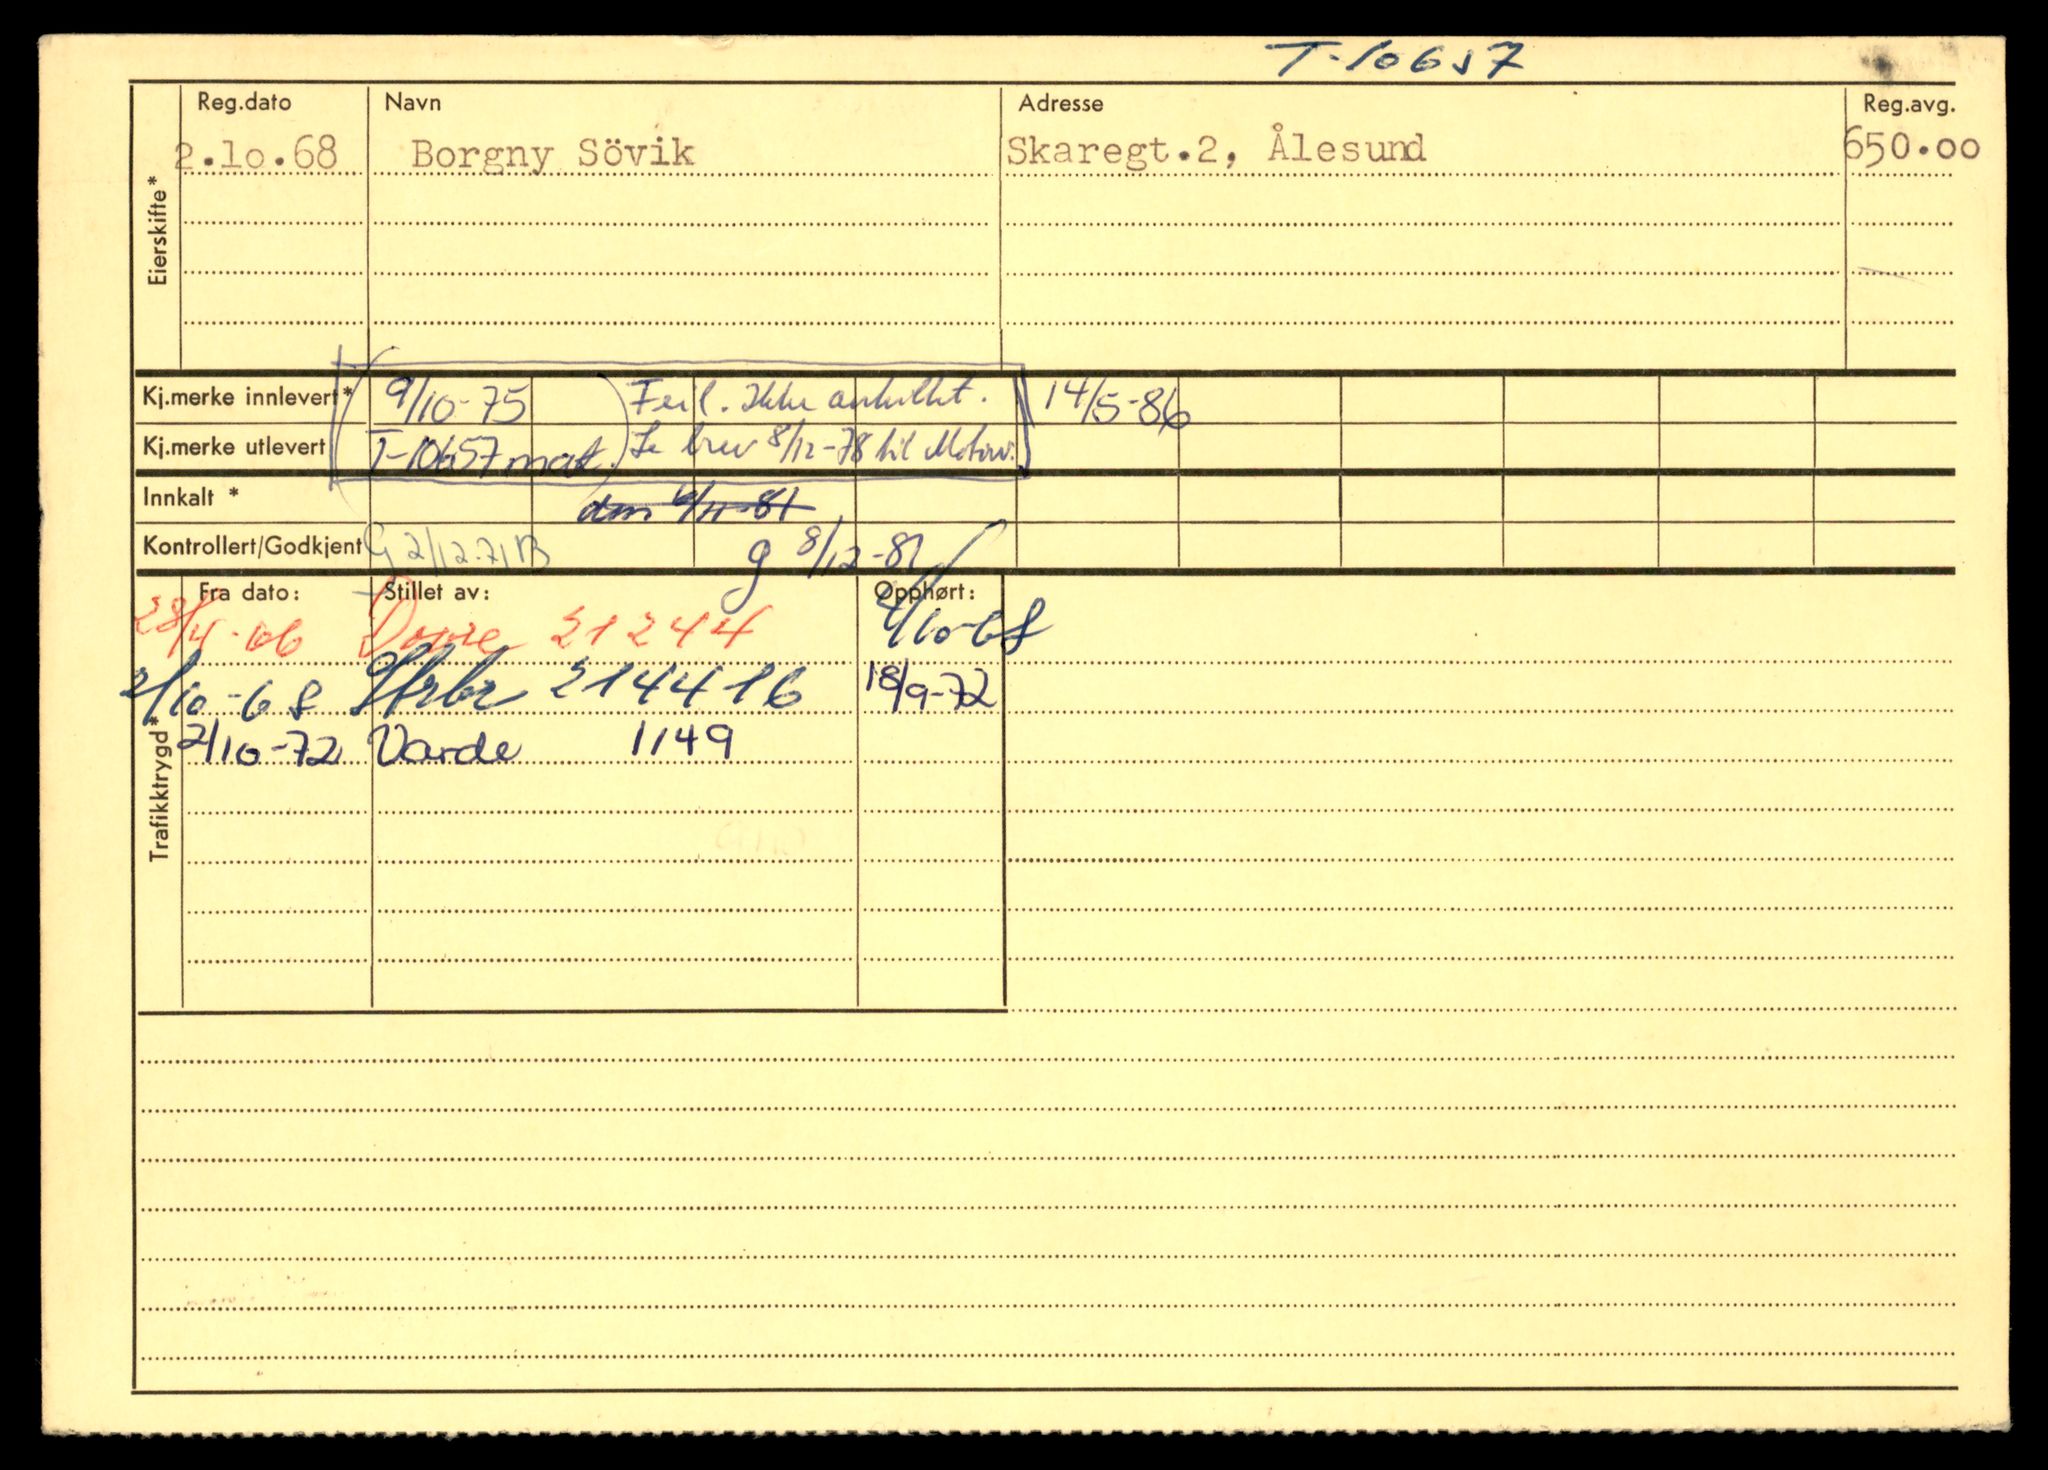 T-10657
Reg.dato Navn Adresse Reg.avg.
2.10.68 Borgny Sövik Skaregt.2, Ålesund 650.00
Eierskifte*
Kj.merke innlevert* 9/10-75 Feil. Ikke avskiltet. 14/5-86
Kj.merke utlevert T-10657 mat. Se brev 8/12-78 til Motorv.
Innkalt * 6/11-81
Kontrollert/Godkjent G 2/12-71 B g 8/12-81
Fra dato: Stillet av: Opphørt:
28/4-66 21244 2/10-68
2/10-68 214416 18/9-72
2/10-72 Varde 1149
Trafikktrygd*